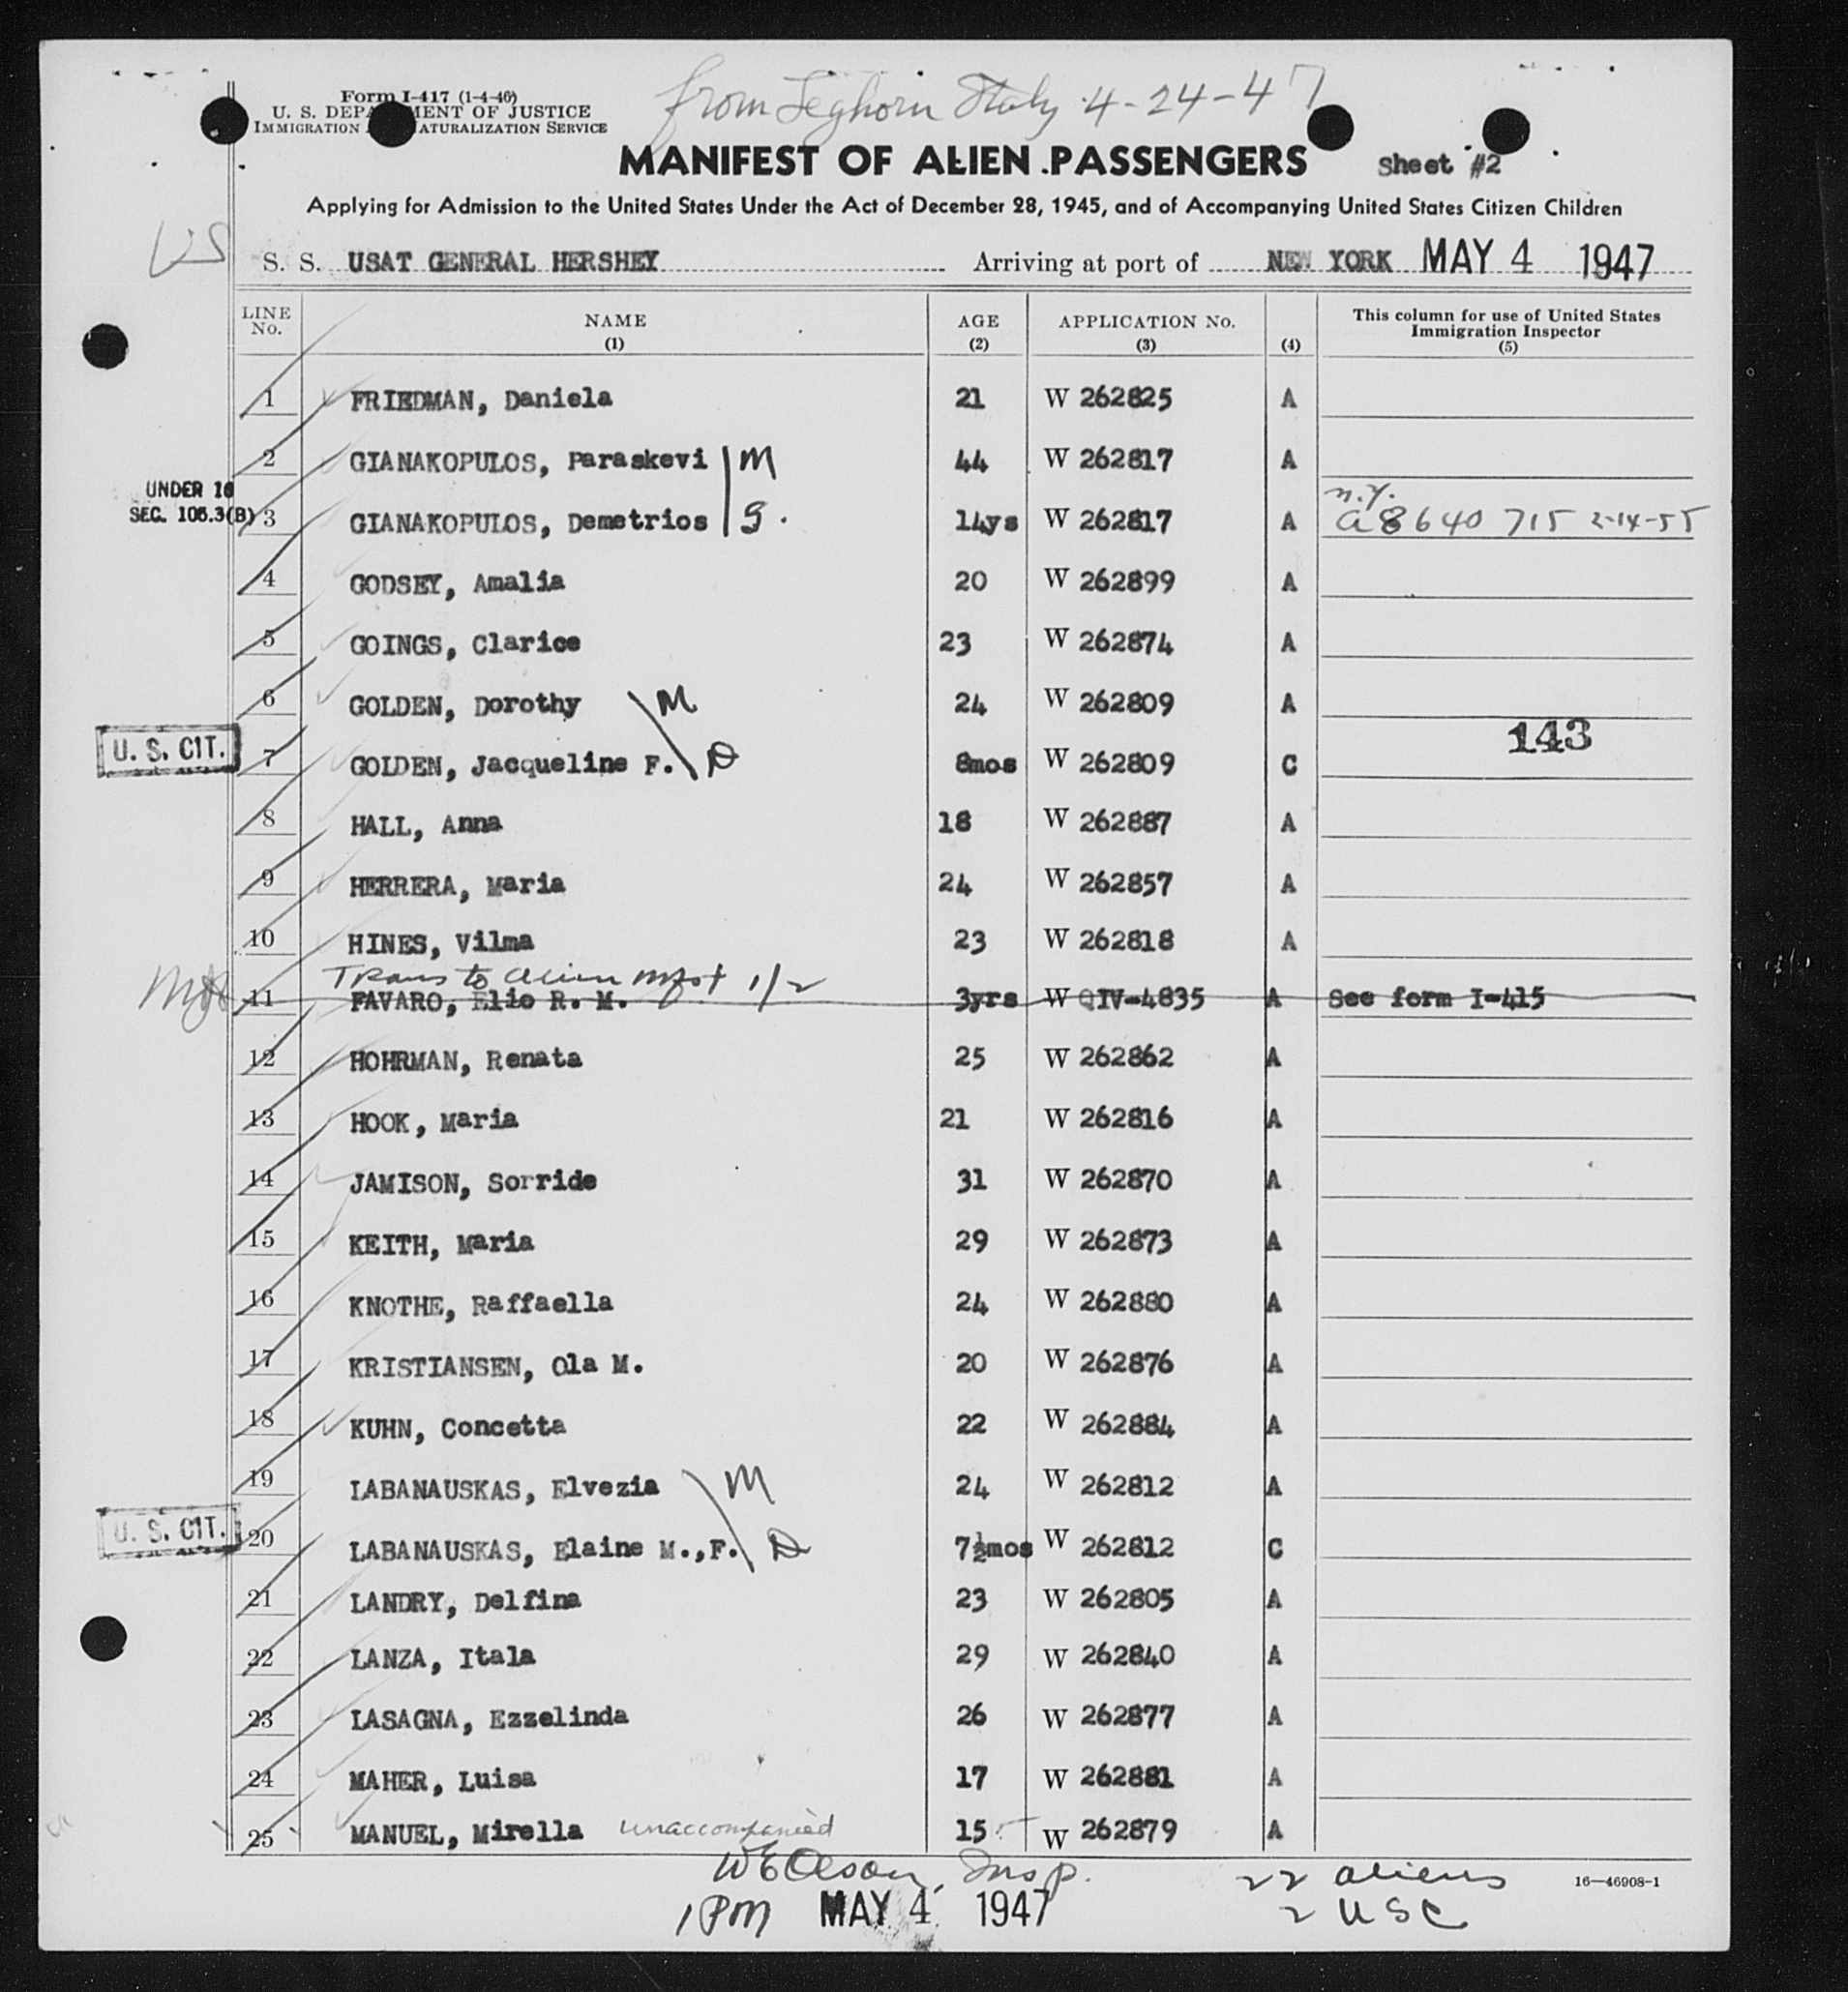 from Leghorn Italy 4-24-47
Form I-417 (1-4-46)
U. S. DEPARTMENT OF JUSTICE
IMMIGRATION NATURALIZATION SERVICE
MANIFEST OF ALIEN PASSENGERS Sheet #2
Applying for Admission to the United States Under the Act of December 28, 1945, and of Accompanying United States Citizen Children
US
S. S. USAT GENERAL HERSHEY Arriving at port of NEW YORK MAY 4 1947
LINE No. NAME (1) AGE (2) APPLICATION No. (3) (4) This column for use of United States Immigration Inspector (5)
1 FRIEDMAN, Daniela 21 W 262825 A
2 GIANAKOPULOS, Paraskevi M 44 W 262817 A
UNDER 16
SEC. 105.3(B) 3 GIANAKOPULOS, Demetrios S. 14ys W 262817 A N.Y. A8640 715 2-14-55
4 GODSEY, Amalia 20 W 262899 A
5 GOINGS, Clarice 23 W 262874 A
6 GOLDEN, Dorothy M 24 W 262809 A
U. S. CIT. 7 GOLDEN, Jacqueline F. D 8mos W 262809 C 143
8 HALL, Anna 18 W 262887 A
9 HERRERA, Maria 24 W 262857 A
10 HINES, Vilma 23 W 262818 A
Trans to alien mfst 1/2
11 FAVARO, Elio R. M. 3yrs W QIV-4835 A See form I-415
12 HOHRMAN, Renata 25 W 262862 A
13 HOOK, Maria 21 W 262816 A
14 JAMISON, Sorride 31 W 262870 A
15 KEITH, Maria 29 W 262873 A
16 KNOTHE, Raffaella 24 W 262880 A
17 KRISTIANSEN, Ola M. 20 W 262876 A
18 KUHN, Concetta 22 W 262884 A
19 LABANAUSKAS, Elvezia M 24 W 262812 A
U. S. CIT. 20 LABANAUSKAS, Elaine M.,F. D 7½mos W 262812 C
21 LANDRY, Delfina 23 W 262805 A
22 LANZA, Itala 29 W 262840 A
23 LASAGNA, Ezzelinda 26 W 262877 A
24 MAHER, Luisa 17 W 262881 A
25 MANUEL, Mirella unaccompanied 15 W 262879 A
WE Olson, Insp. 22 aliens 16—46908-1
1 PM MAY 4 1947 2 USC